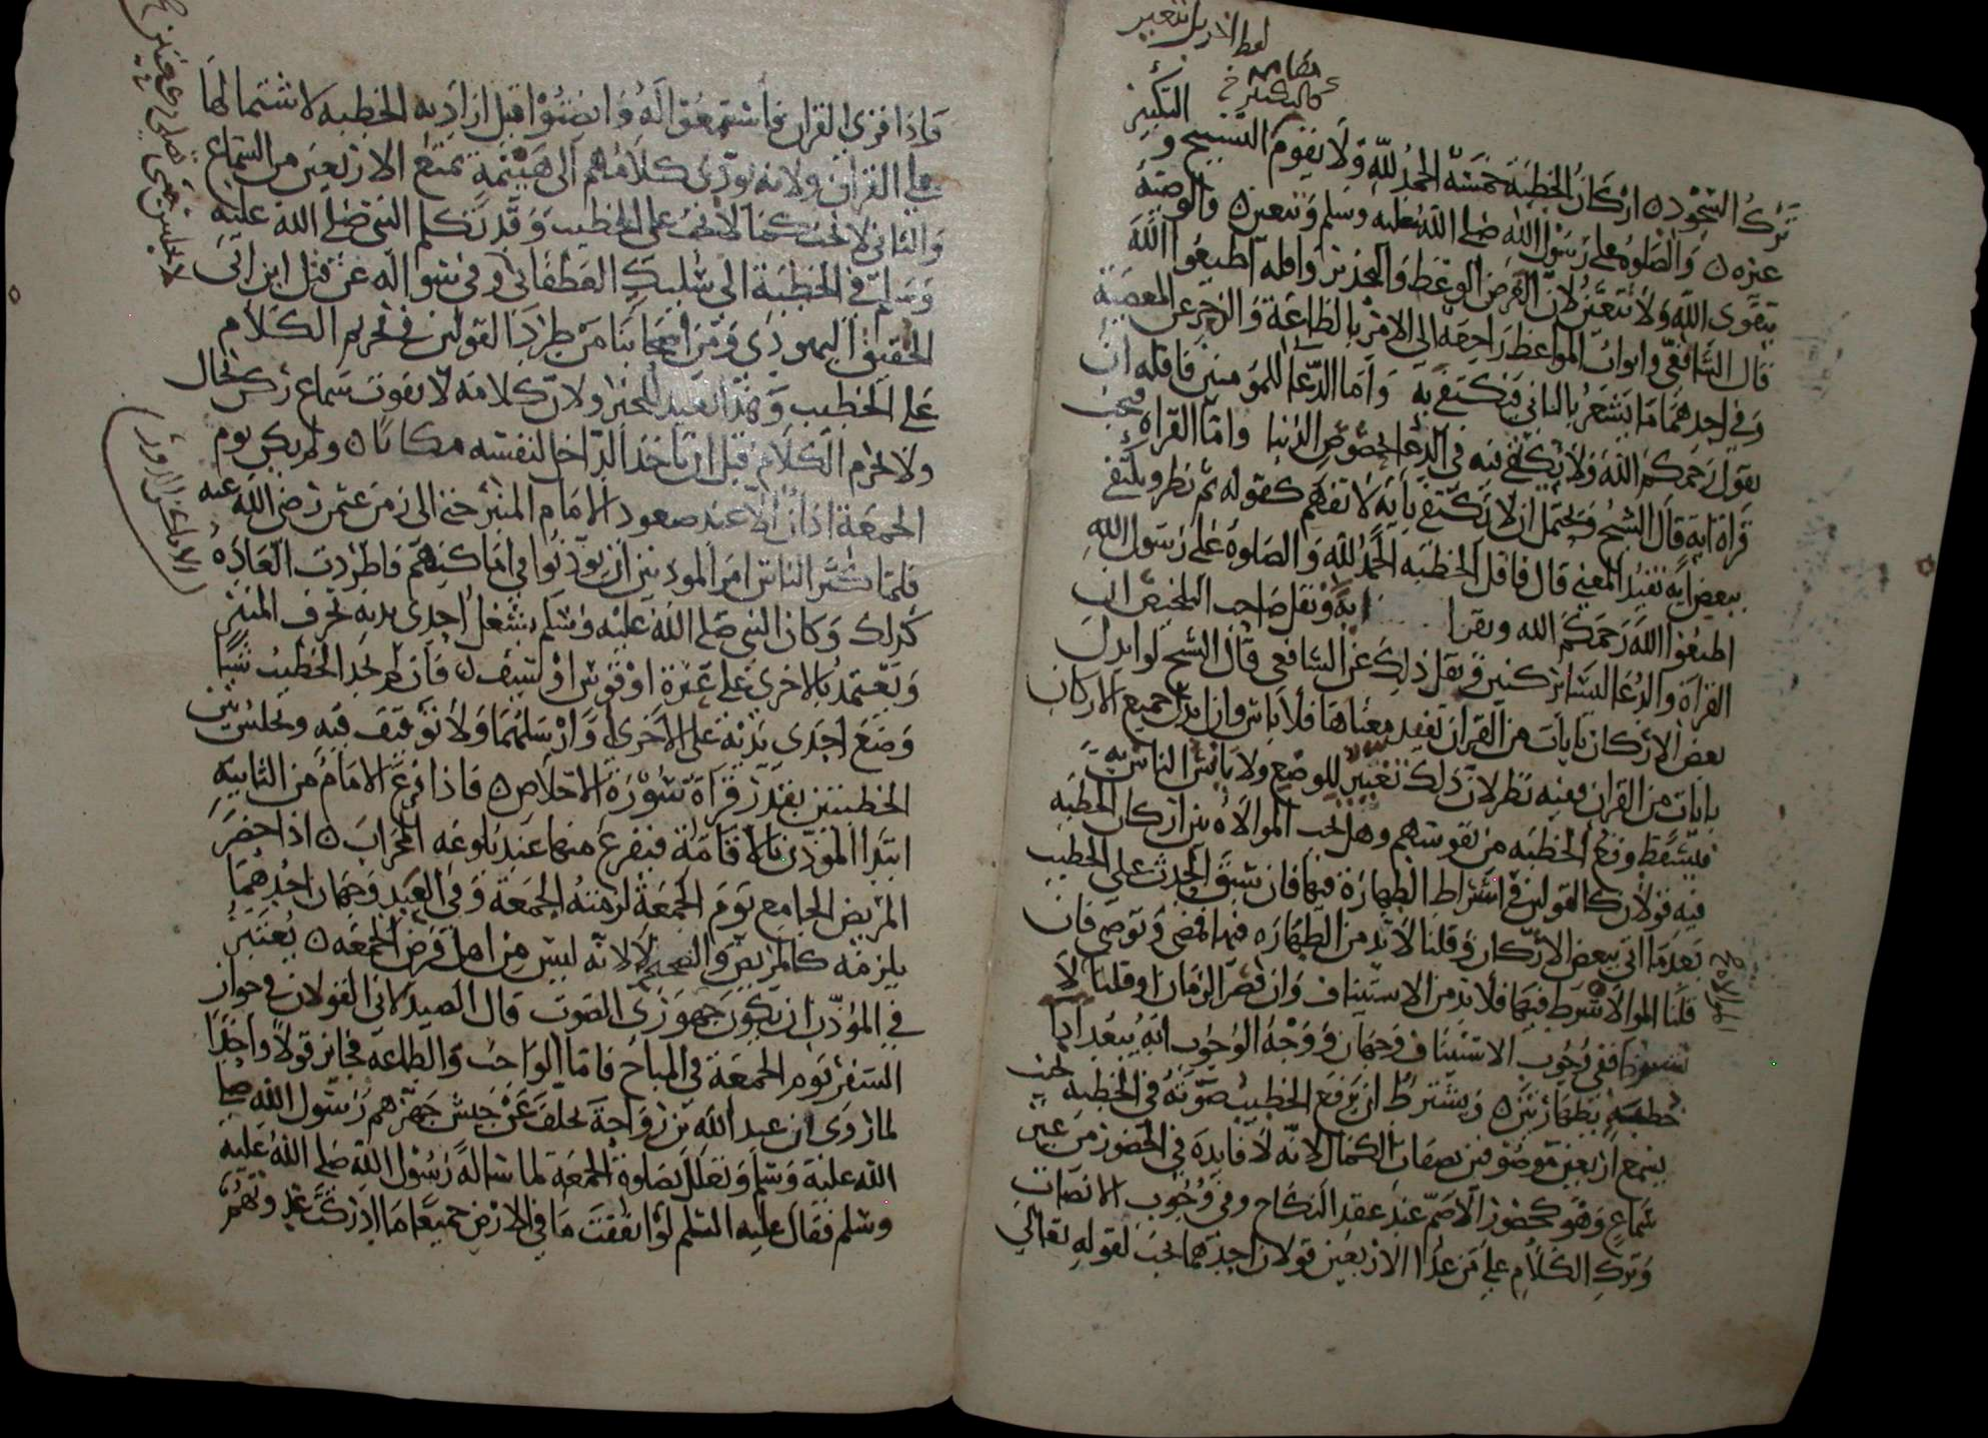 لفظ الاربل تتعير
مقامه
كالتكبير خ
ترك السجود ٥ اركان الخطبة خمسة الحمد لله ولا يقوم التسبيح و التكبير
غيره ٥ والصلوة على رسول الله صلى الله عليه وسلم وتتعين ٥ والوصية
بتقوى الله ولا تتعين لان الغرض الوعظ والتحذير واقله اطيعوا الله
قال الشافعي وابواب المواعظ راجعة الى الامر بالطاعة والزجر عن المعصية
وفي احدهما ما يشعر بالثاني فيكتفى به واما الدعا للمومنين فاقله ان
يقول رحمكم الله ولا يكفي فيه في الدعا بخصوص الدنيا واما القراه فيجب
قراة اية قال الشيخ ويحتمل ان لا يكتفى باية لا تفهم كقوله ثم نظر ويكتفى
ببعض اية تفيد المعنى قال فاقل الخطبه الحمد لله والصلوة على رسول الله
اطيعوا الله رحمكم الله ويقرا اية ونقل صاحب التلخيص ان
القراة والدعا ليسا بركنين ونقل ذلك عن الشافعي قال الشيح لو ابدل
بعض الاركان بايات من القران تفيد معناها فلا باس وان ابدل جميع الاركان
بايات من القران ففيه نظر لان ذلك تغيير للوضع ولا يانس الناس به
فيسقط وقع الخطبه من نفوسهم وهل تجب الموالاه بين اركان الخطبه
فيه قولان كالقولين في اشتراط الطهارة فيها فان سبق الحدث على الخطيب
بعد ما اتى ببعض الاركان وقلنا لا بد من الطهاره فيها فمضى وتوضى فان
قلنا الموالاة شرط فيها فلا بد من الاستيناف وان قصر الزمان او قلنا لا
تشترط ففي وجوب الاستيناف وجهان ووجه الوجوب انه يبعد اداء
خطبة بطهارتين ٥ ويشترط ان يرفع الخطيب صوته في الخطبه بحيث
يسمع اربعين موصوفين بصفات الكمال لانه لا فايدة في الحضور من غير
سماع وهو كحضور الاصم عند عقد النكاح وفي وجوب الانصات
وترك الكلام على من عدا الاربعين قولان احدهما يجب لقوله تعالى
الموالاة صح
واذا قرى القران فاستمعوا له وانصتوا قيل اراد به الخطبه لاشتمالها
على القران ولانه يودي كلامهم الى هينمة تمنع الاربعين من السماع
والثاني لا يجب كما لا يجب على الخطيب وقد تكلم النبي صلى الله عليه
وسلم في الخطبة الى سليك الغطفاني وفي سواله عن قتل ابن ابى
الحقيق اليهودي ومن اصحابنا من طرد القولين في تحريم الكلام
على الخطيب وهذا بعيد للخبر ولان كلامه لا يفوت سماع ركن بحال
ولا يحرم الكلام قبل ان ياخذ الداخل لنفسه مكانا ٥ ولم يكن يوم
الجمعة اذان الا عند صعود الامام المنبر حتى الى زمن عثمن رضي الله عنه
فلما كثر الناس امر الموذنين ان يوذنوا في اماكنهم فاطردت العادة
كذلك وكان النبي صلى الله عليه وسلم يشغل احدى يديه بحرف المنبر
ويعتمد بالاخرى على عنزة او قوس او سيف ٥ فان لم يجد الخطيب شيا
وضع احدى يديه على الاخرى او ارسلهما ولا توقيف فيه ويجلس بين
الخطبتين بقدر قراة سورة الاخلاص ٥ فاذا فرغ الامام من الثانيه
ابتدا الموذن بالاقامة فيفرغ منها عند بلوغه المحراب ٥ اذا حضر
المريض الجامع يوم الجمعة لزمته الجمعة وفي العبد وجهان احدهما
يلزمه كالمريض والصحيح لا لانه ليس من اهل فرض الجمعه ٥ يعتبر
في الموذن ان يكون جهوري الصوت قال الصيدلاني القولان في جواز
السفر يوم الجمعة في المباح فاما الواجب والطاعة فجائز قولا واحدا
لما روي ان عبد الله بن رواحة تخلف عن جيش جهزهم رسول الله صلى
الله عليه وسلم وتعلل بصلوة الجمعة لما ساله رسول الله صلى الله عليه
وسلم فقال عليه السلم لو انفقت ما في الارض جميعا ما ادركت غدوتهم